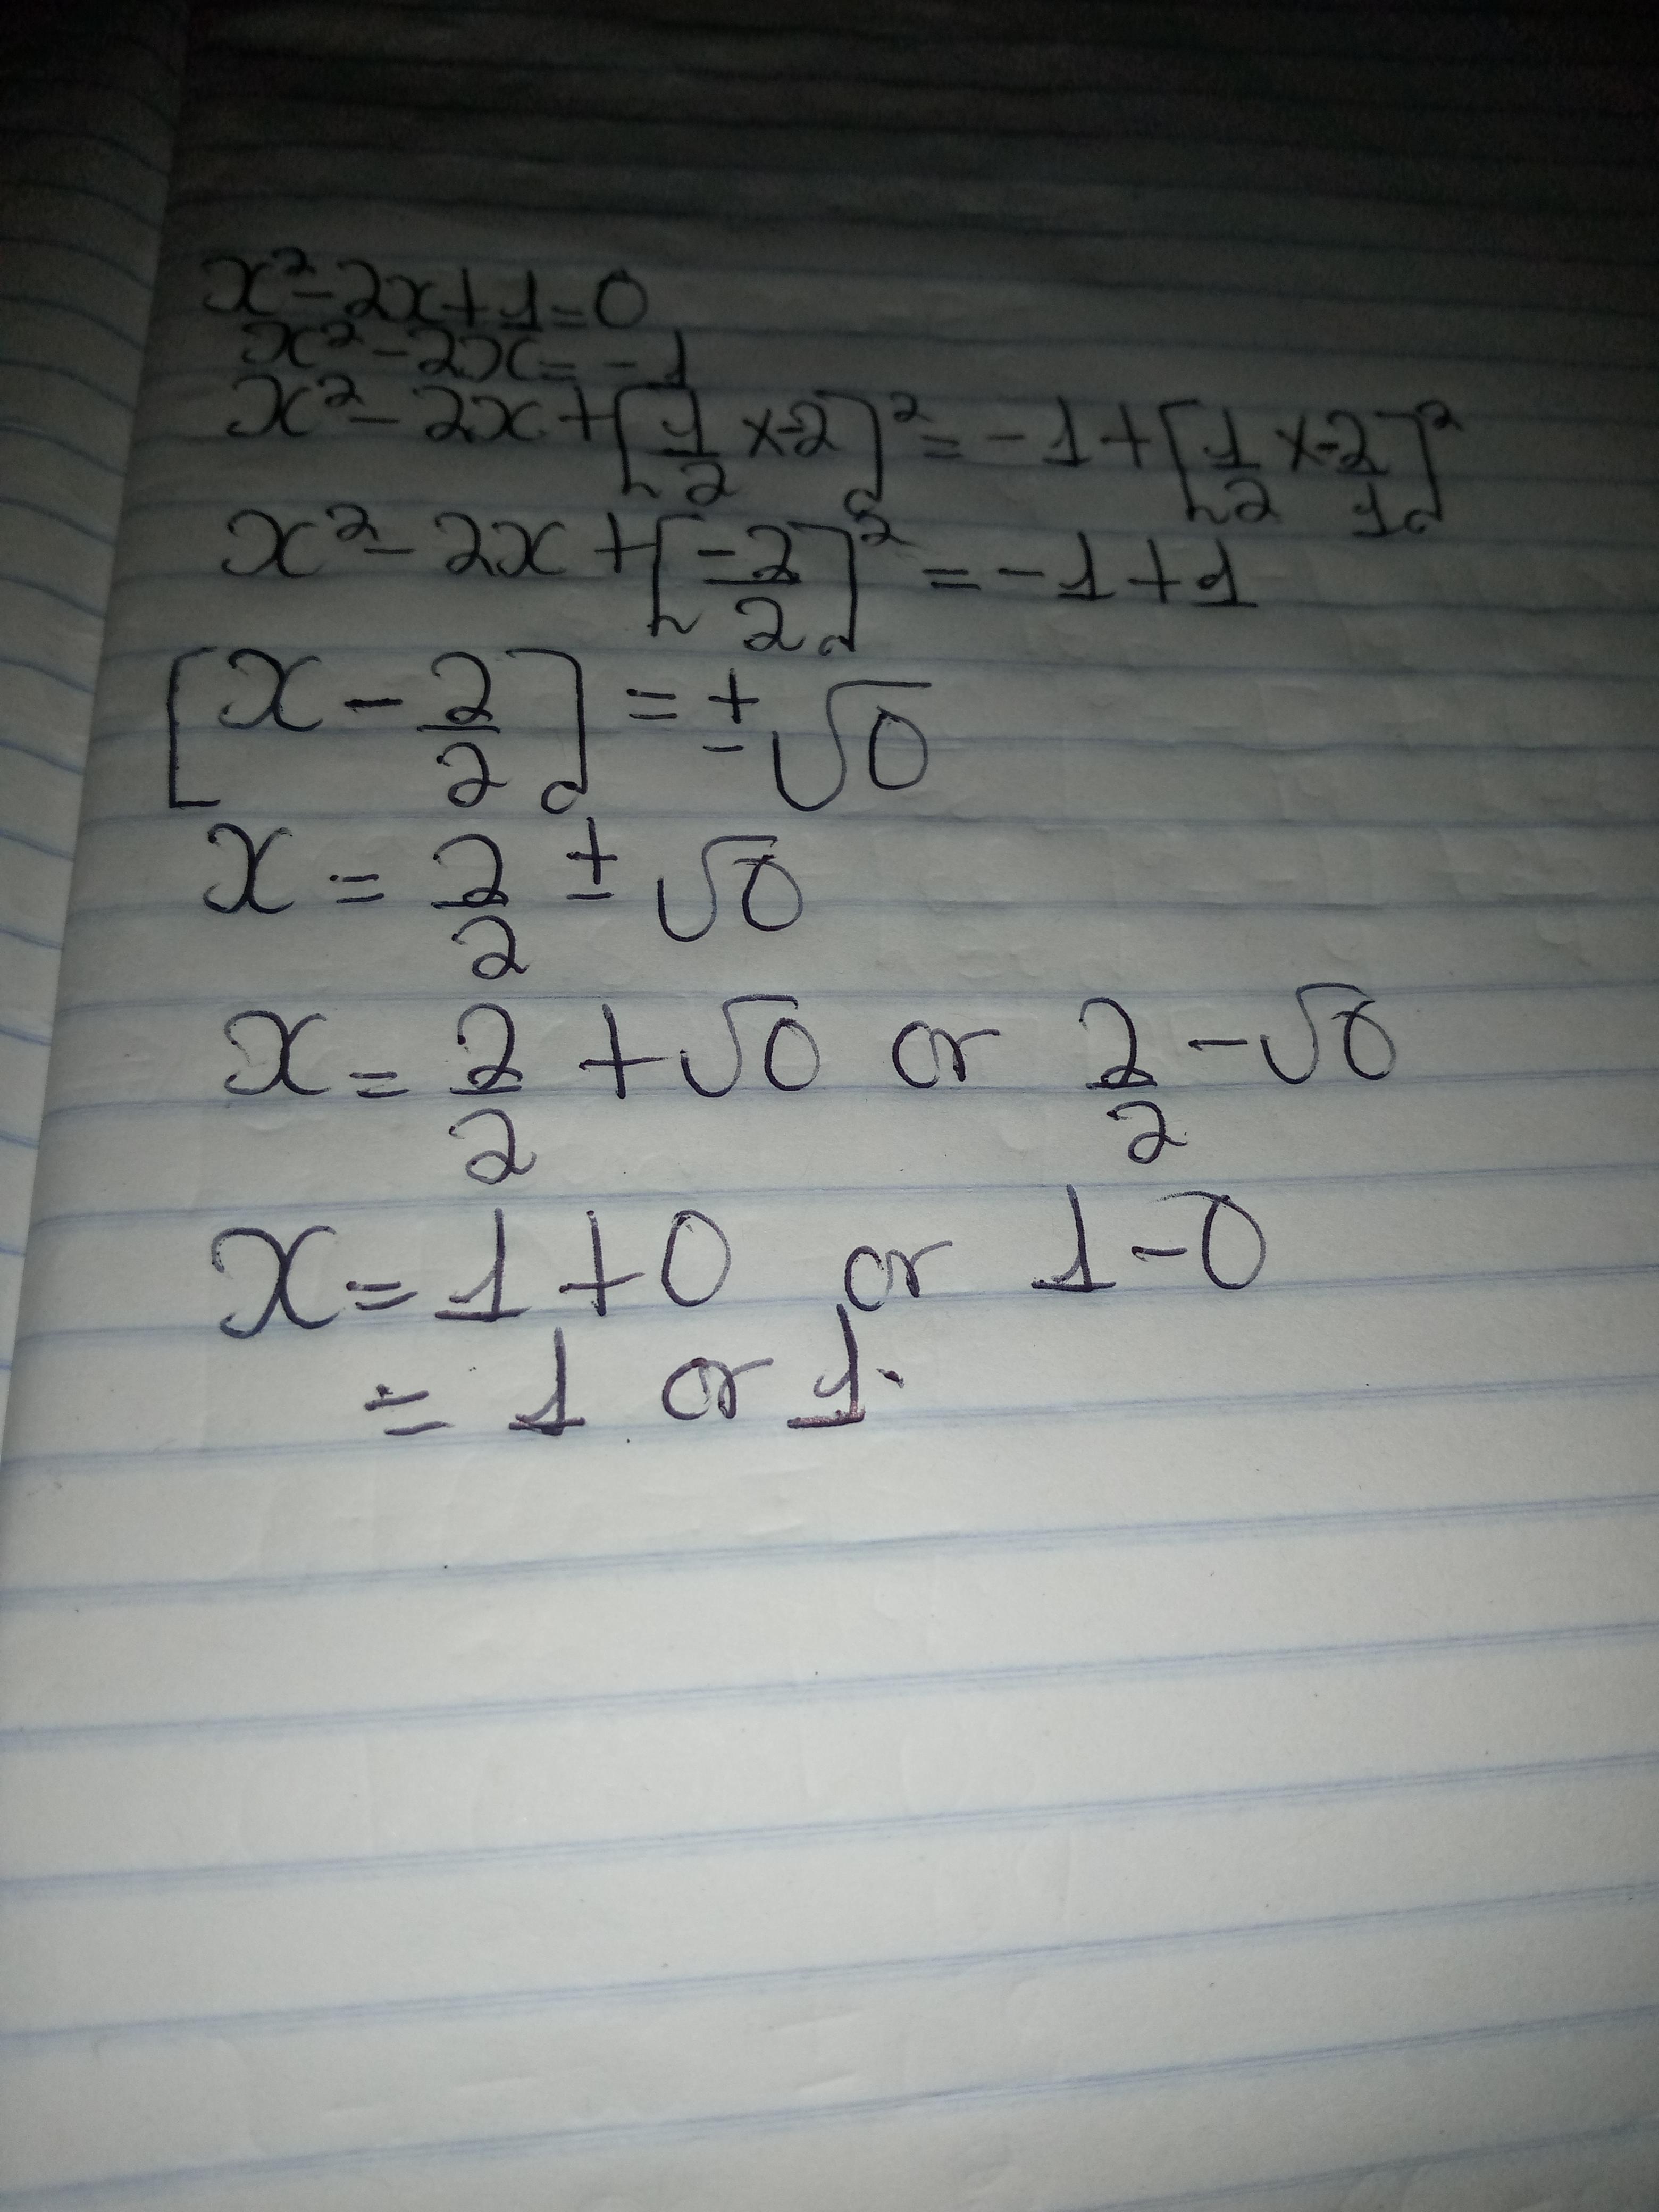 x² - 2x + 1 = 0
x² - 2x = - 1
x² - 2x + [1/2 × -2]² = - 1 + [1/2 × -2/1]²
x² - 2x + [-2/2]² = - 1 + 1
[x - 2/2] = ± √0
x = 2/2 ± √0
x = 2/2 + √0 or 2/2 - √0
x = 1 + 0 or 1 - 0
= 1 or 1.